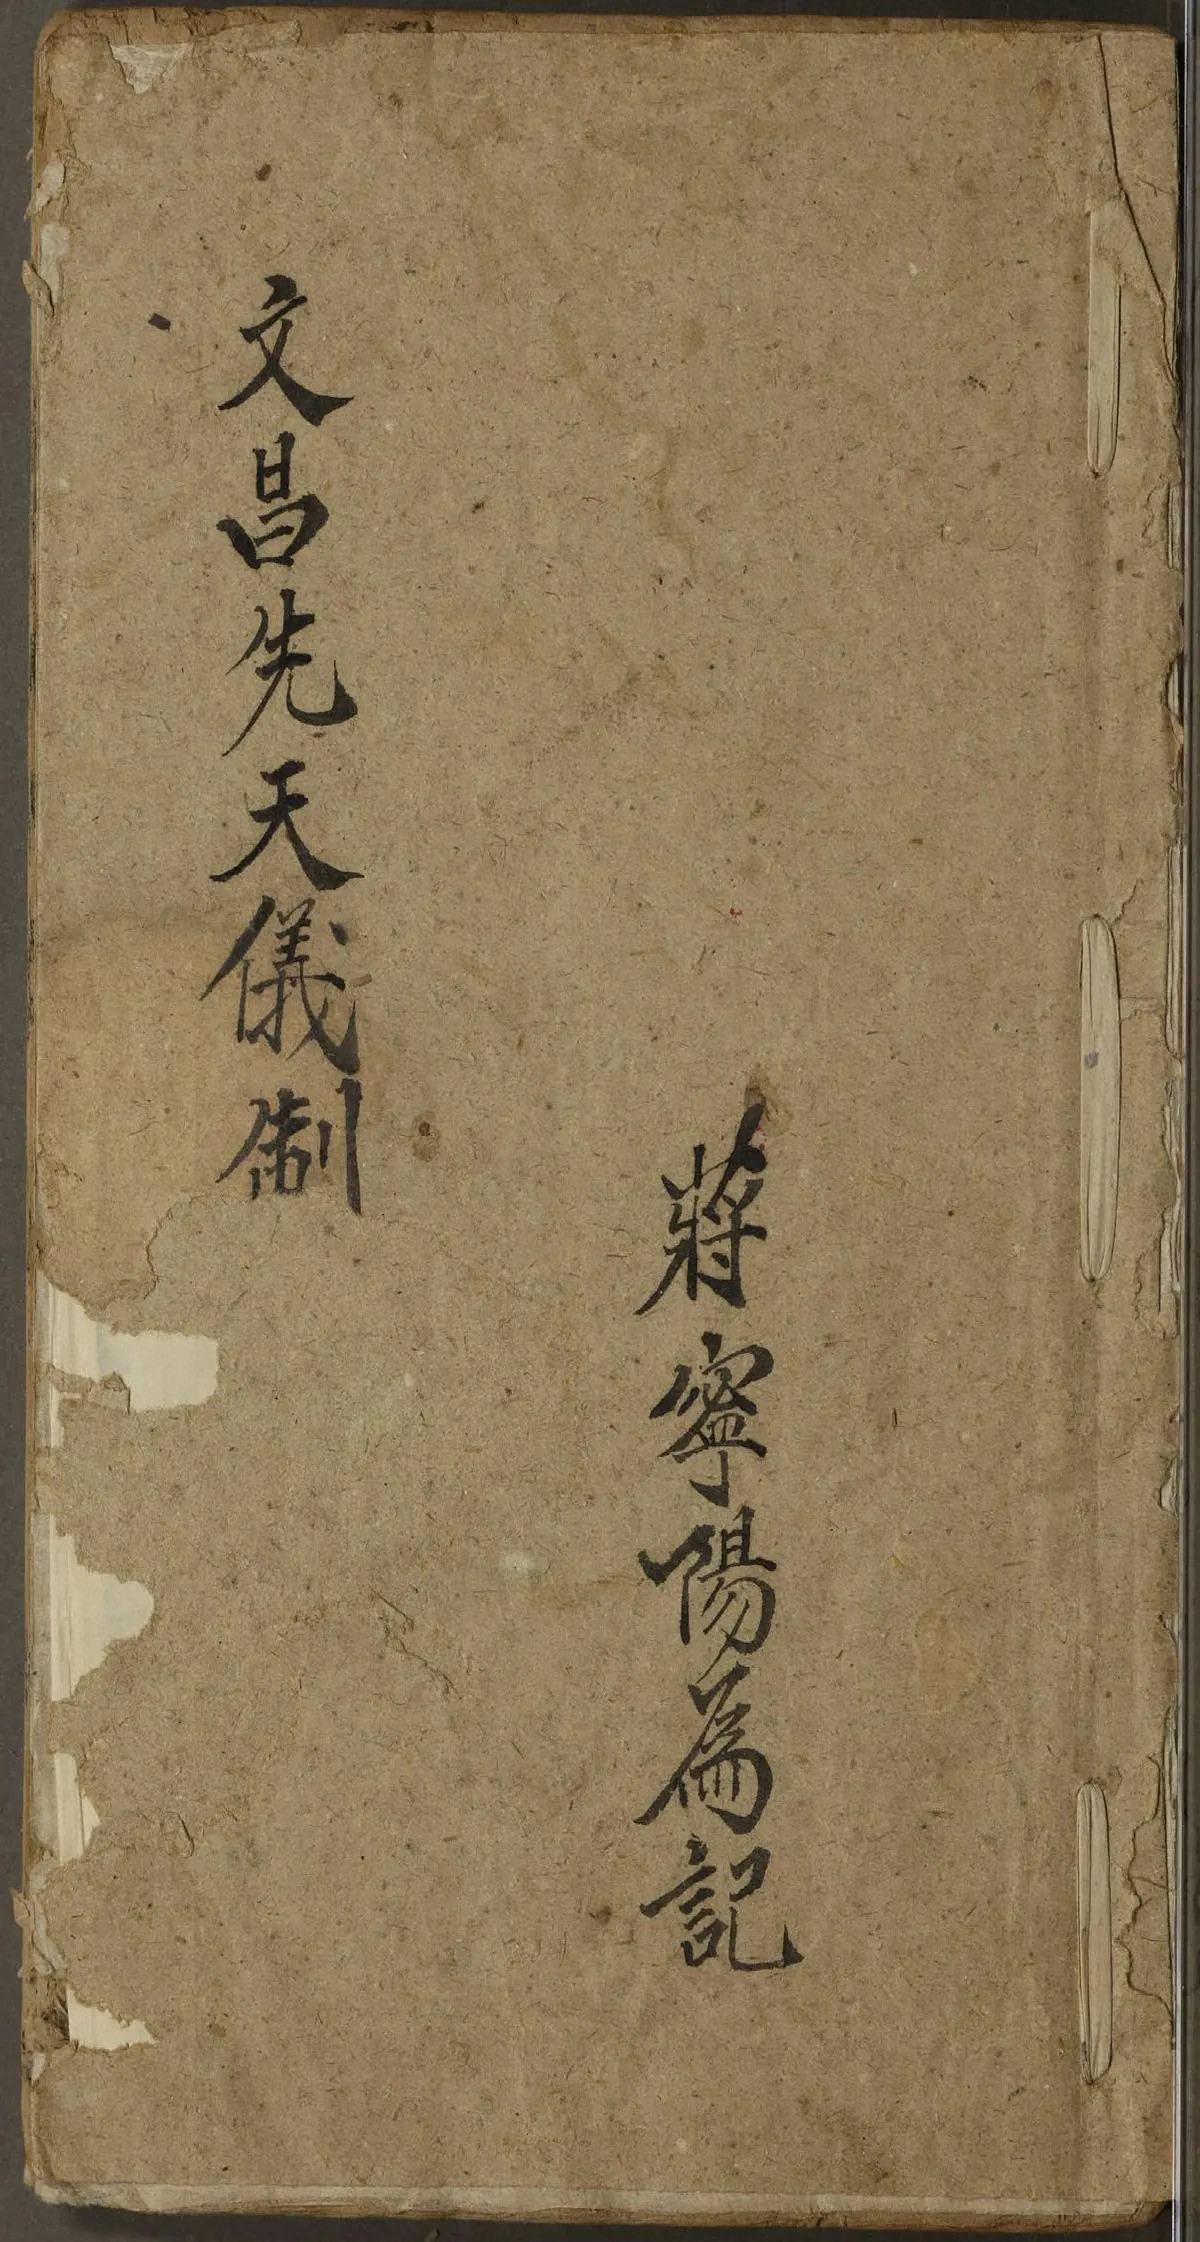 蔣寧陽為記
文昌先天儀制